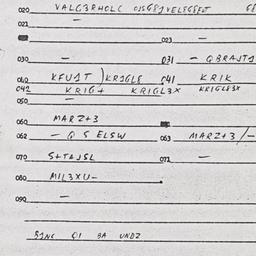 020 VALG3RHOLC
021 —
023 —
030 — 031 — QBRAJT1
040 KFUJT ) KRIGLE 041 KRIK
042 KRIG+ KRIGL3X KRIGL3X
050 —
060 MARZ+3
062 — Q S ELSW 063 MARZ+3/—
070 S+TAJSL 071 —
080 MIL3XU—
090 —
BJNG QI BA UNDZ